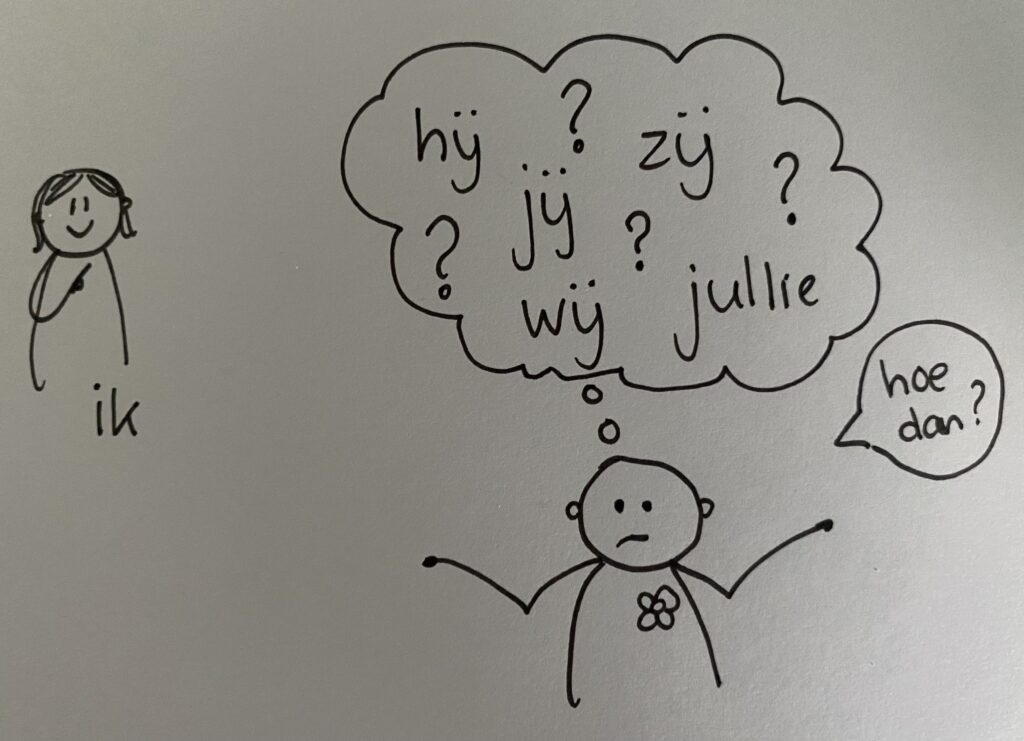 hij ? zij
jij ?
? ?
wij jullie
ik
hoe
dan?